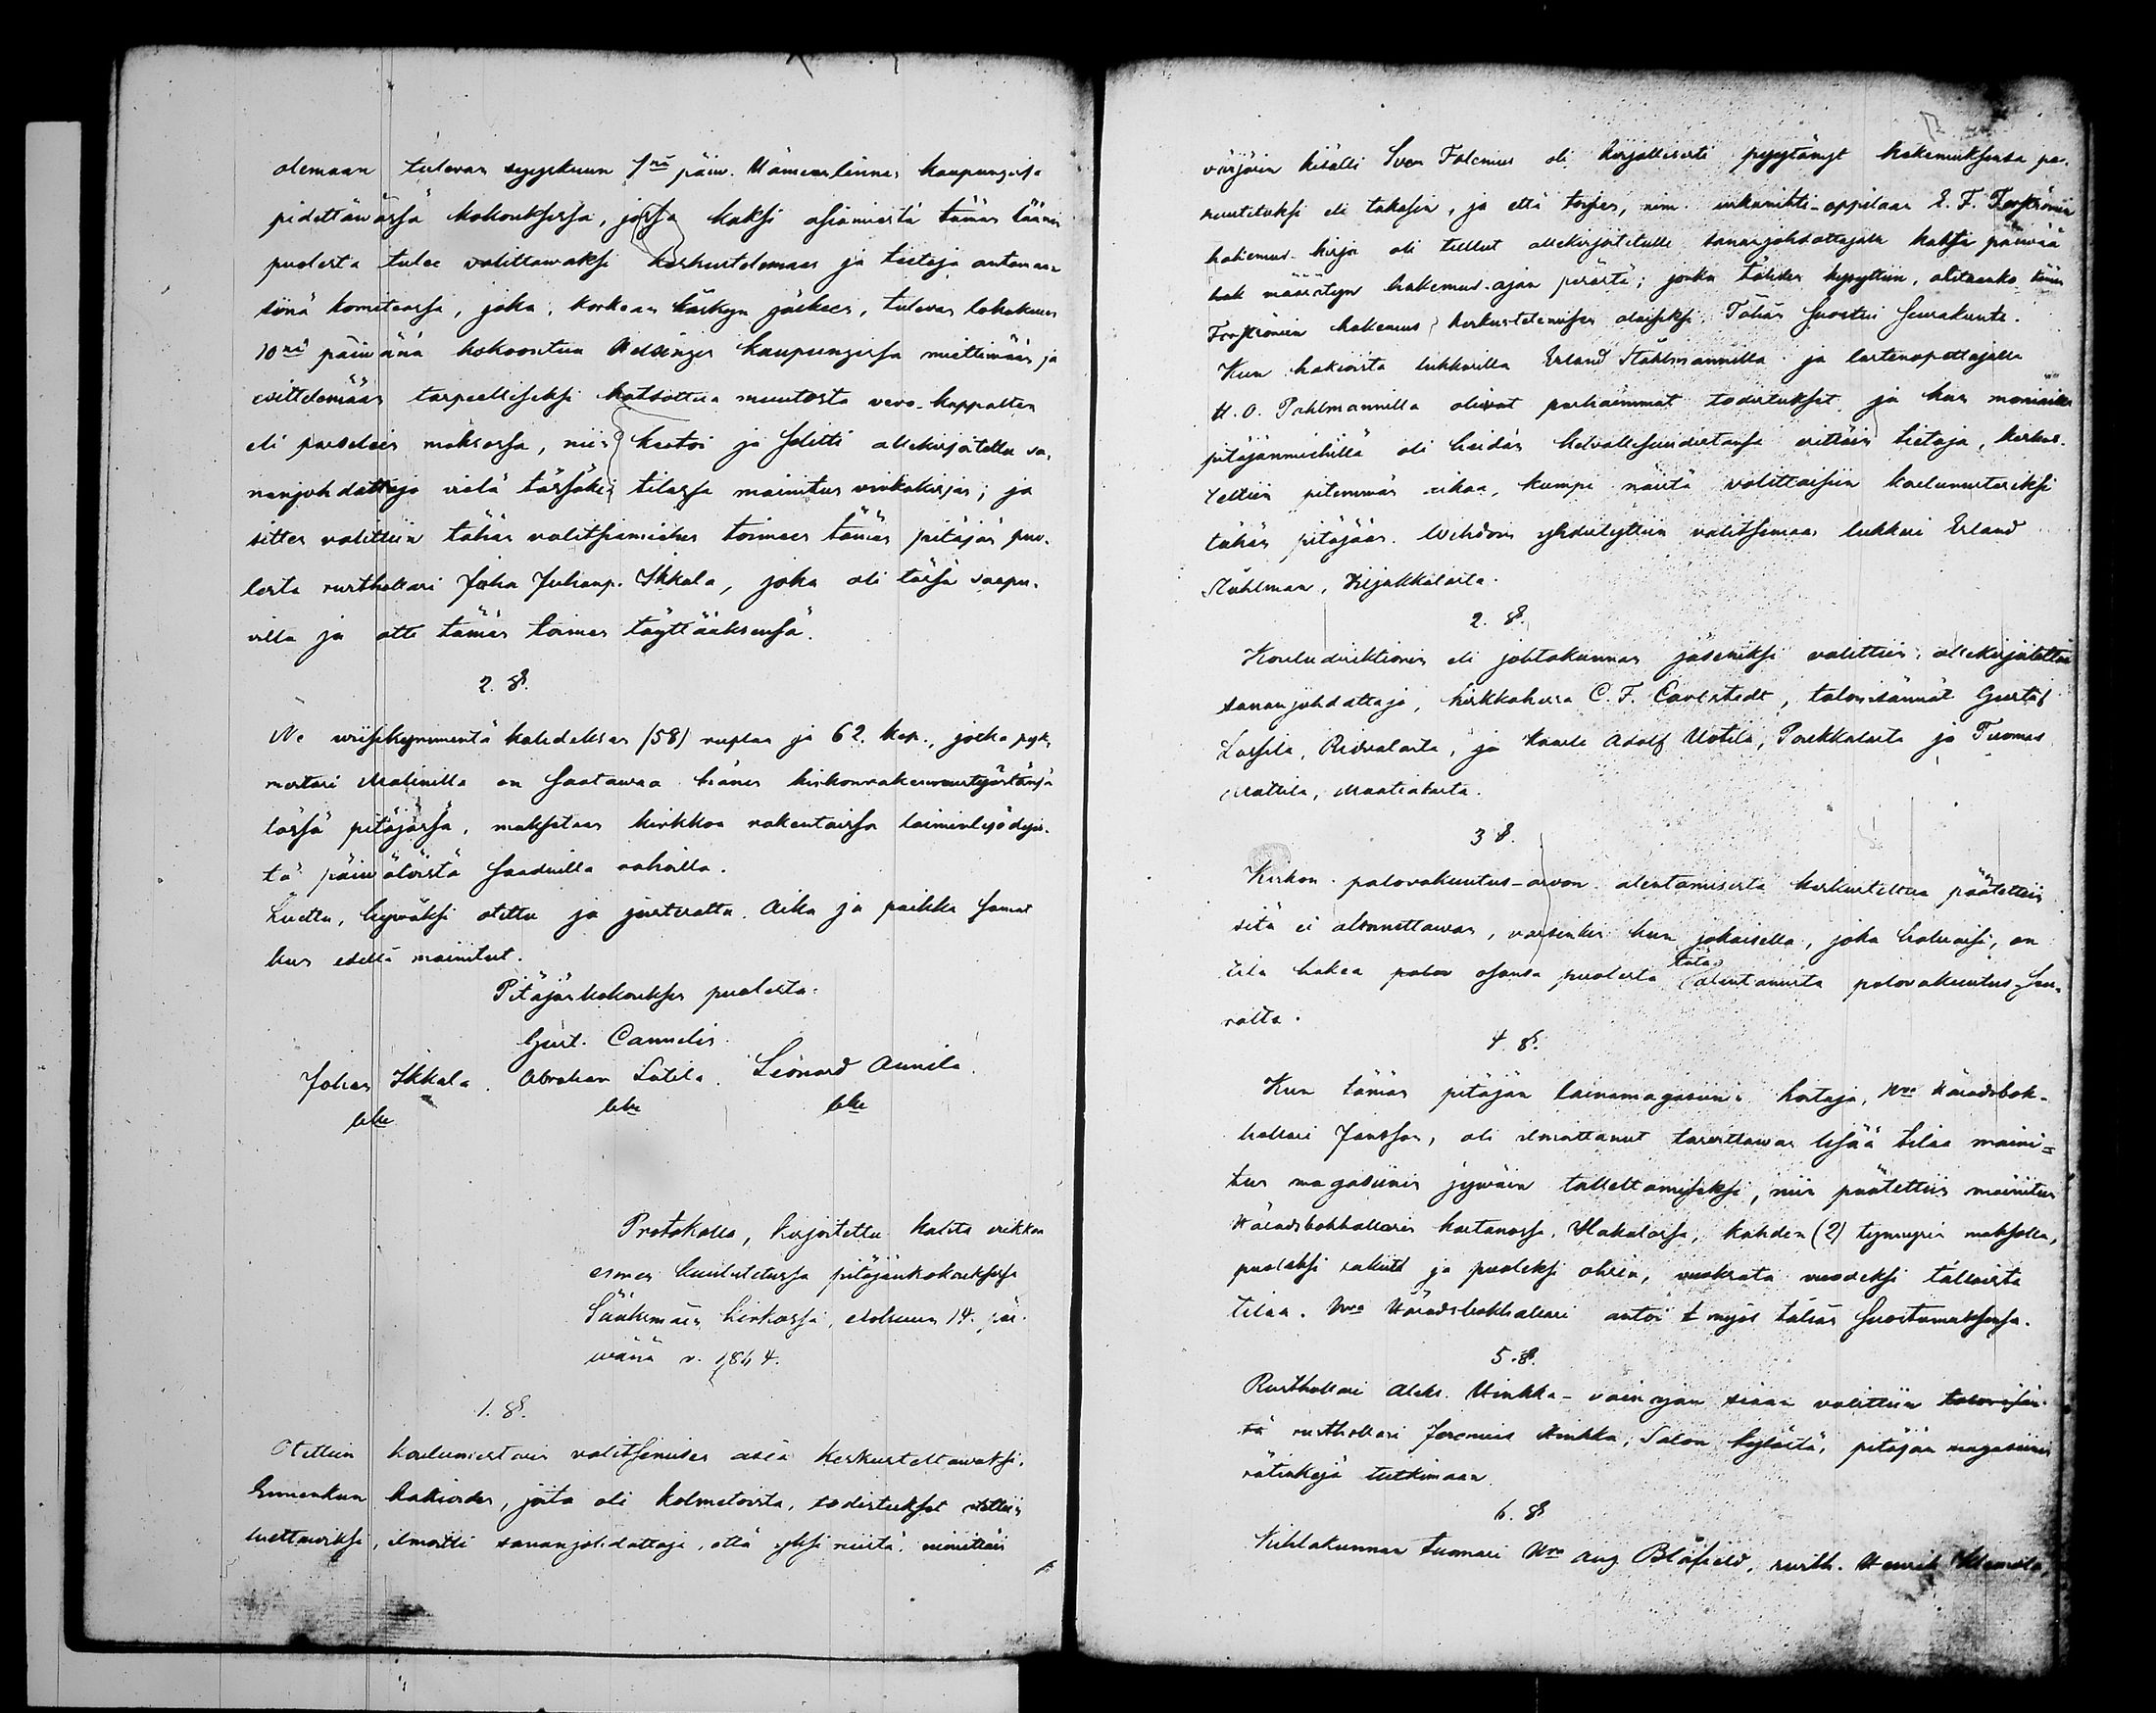 olemaan tulevan syyskuun 1nä päiw. Hämeenlinnan kaupungissa
pidettäwässä kokouksessa, jossa kaksi asiamiestä tämän läänin
puolesta tulee walittawaksi keskustelemaan ja tietoja antamaan
siinä komiteassa, joka, korkean käskyn jälkeen, tulevan lokakuun
10nä päiwänä kokoontuu Helsingin kaupungissa miettimään ja
esittelemään tarpeelliseksi katsottua muutosta vero-kappalten
eli parselein maksossa, niin kertoi ja selitti allekirjoitettu sa-
nanjohdattaja vielä tässäkin tilassa mainitun virkakirjan; ja
sitten valittiin tähän valitsiamiehen toimeen tämän pitäjän puo-
lesta rusthollari Joha Juhanp. Ikkala, joka oli tässä saapu-
villa ja otti tämän toimen täyttääksensä.
2. §.
Ne wiisikymmentä kahdeksan (58) ruplaa ja 62. kop., jotka pyk.
mestari Malinilla on saatawaa hänen kirkonrakennustyöstänsä
tässä pitäjässä, maksetaan kirkkoa rakentaissa laiminlyödyis-
tä päiwätöistä saaduilla rahoilla.
Luettu, hywäksi otettu ja justerattu. Aika ja paikka samat
kun edellä mainitut.
Pitäjänkokouksen puolesta:
Gust. Cannelin.
Johan Ikkala. Abraham Lätilä. Leonard Annila.
lske lske lske
Protokolla, kirjoitettu kahta wiikkoa
ennen kuulutetussa pitäjänkokouksessa
Sääksmäen kirkossa, elokuun 14. päi-
wänä v. 1864.
1. §.
Otettiin koulumestarin valitsemisen asia keskusteltawaksi.
Ennenkun hakioiden, joita oli kolmetoista, todistukset otettiin
luettawiksi, ilmoitti sananjohdattaja, että yksi niistä, nimittäin
värjärin kisälli Sven Talenius oli kirjallisesti pyytänyt hakemuksensa pe-
ruutetuksi eli takasin, ja että toisen, nim. urkunihti-oppilaan E. F. Forsströmin
hakemus-kirja oli tullut allekirjoitetulle sananjohdattajalle kahta päiwää
määrätyn hakemus-ajan perästä; jonka tähden kysyttiin, otetaanko tämän
Forsströmin hakemus keskustelemisen alaiseksi. Tähän suostui seurakunta.
Kun hakioista lukkarilla Erland Ståhlmannilla ja lastenopettajalla
H. O. Pahlmannilla oliwat parhaimmat todistukset, ja kun moniailla
pitäjänmiehillä oli heidän kelvollisuudestansa erittäin tietoja, keskus-
teltiin pitemmän aikaa, kumpi näistä valittaisiin koulumestariksi
tähän pitäjään. Wihdoin yhdistyttiin valitsemaan lukkari Erland
Ståhlman, Kiljakkalasta.
2. §.
Kouludirektionin eli johtokunnan jäseniksi valittiin, allekirjoitettu
sananjohdattaja, kirkkoherra C. F. Carlstedt, talonisännät Gustaf
Lassila, Ridvalasta, ja Kaarle Adolf Uotila, Paukkalasta ja Tuomas
Mattila, Maatialasta.
3 §.
Kirkon palovakuutus-arvon alentamisesta keskusteltua päätettiin
sitä ei alennettawan, varsinkin kun jokaisella, joka haluaisi, on
tila hakea osansa puolesta tätä alentamista palovakuutus-seu-
ralta.
4. §.
Kun tämän pitäjän lainamagasiinin hoitaja, Hra Häradsbok-
hollari Jansson, oli ilmoittanut tarvittawan lisää tilaa maini-
tun magasiinin jywäin tallettamiseksi, niin päätettiin mainitun
Häradsbokhollarin kartanossa, Hakalassa, kahden (2) tynnyrin maksolla,
puoleksi rukiita ja puoleksi ohria, vuokrata vuodeksi tällaista
tilaa. Hra Häradsbokhollari antoi myös tähän suostumuksensa.
5. §.
Rusthollari Aleks. Hinkka-vainajan siaan valittiin
rusthollari Jeremias Hinkka, Salon kylästä, pitäjän magasiinin
rätinkejä tutkimaan.
6. §
Kihlakunnan tuomari Hra Aug Blåfield, rusth. Henrik